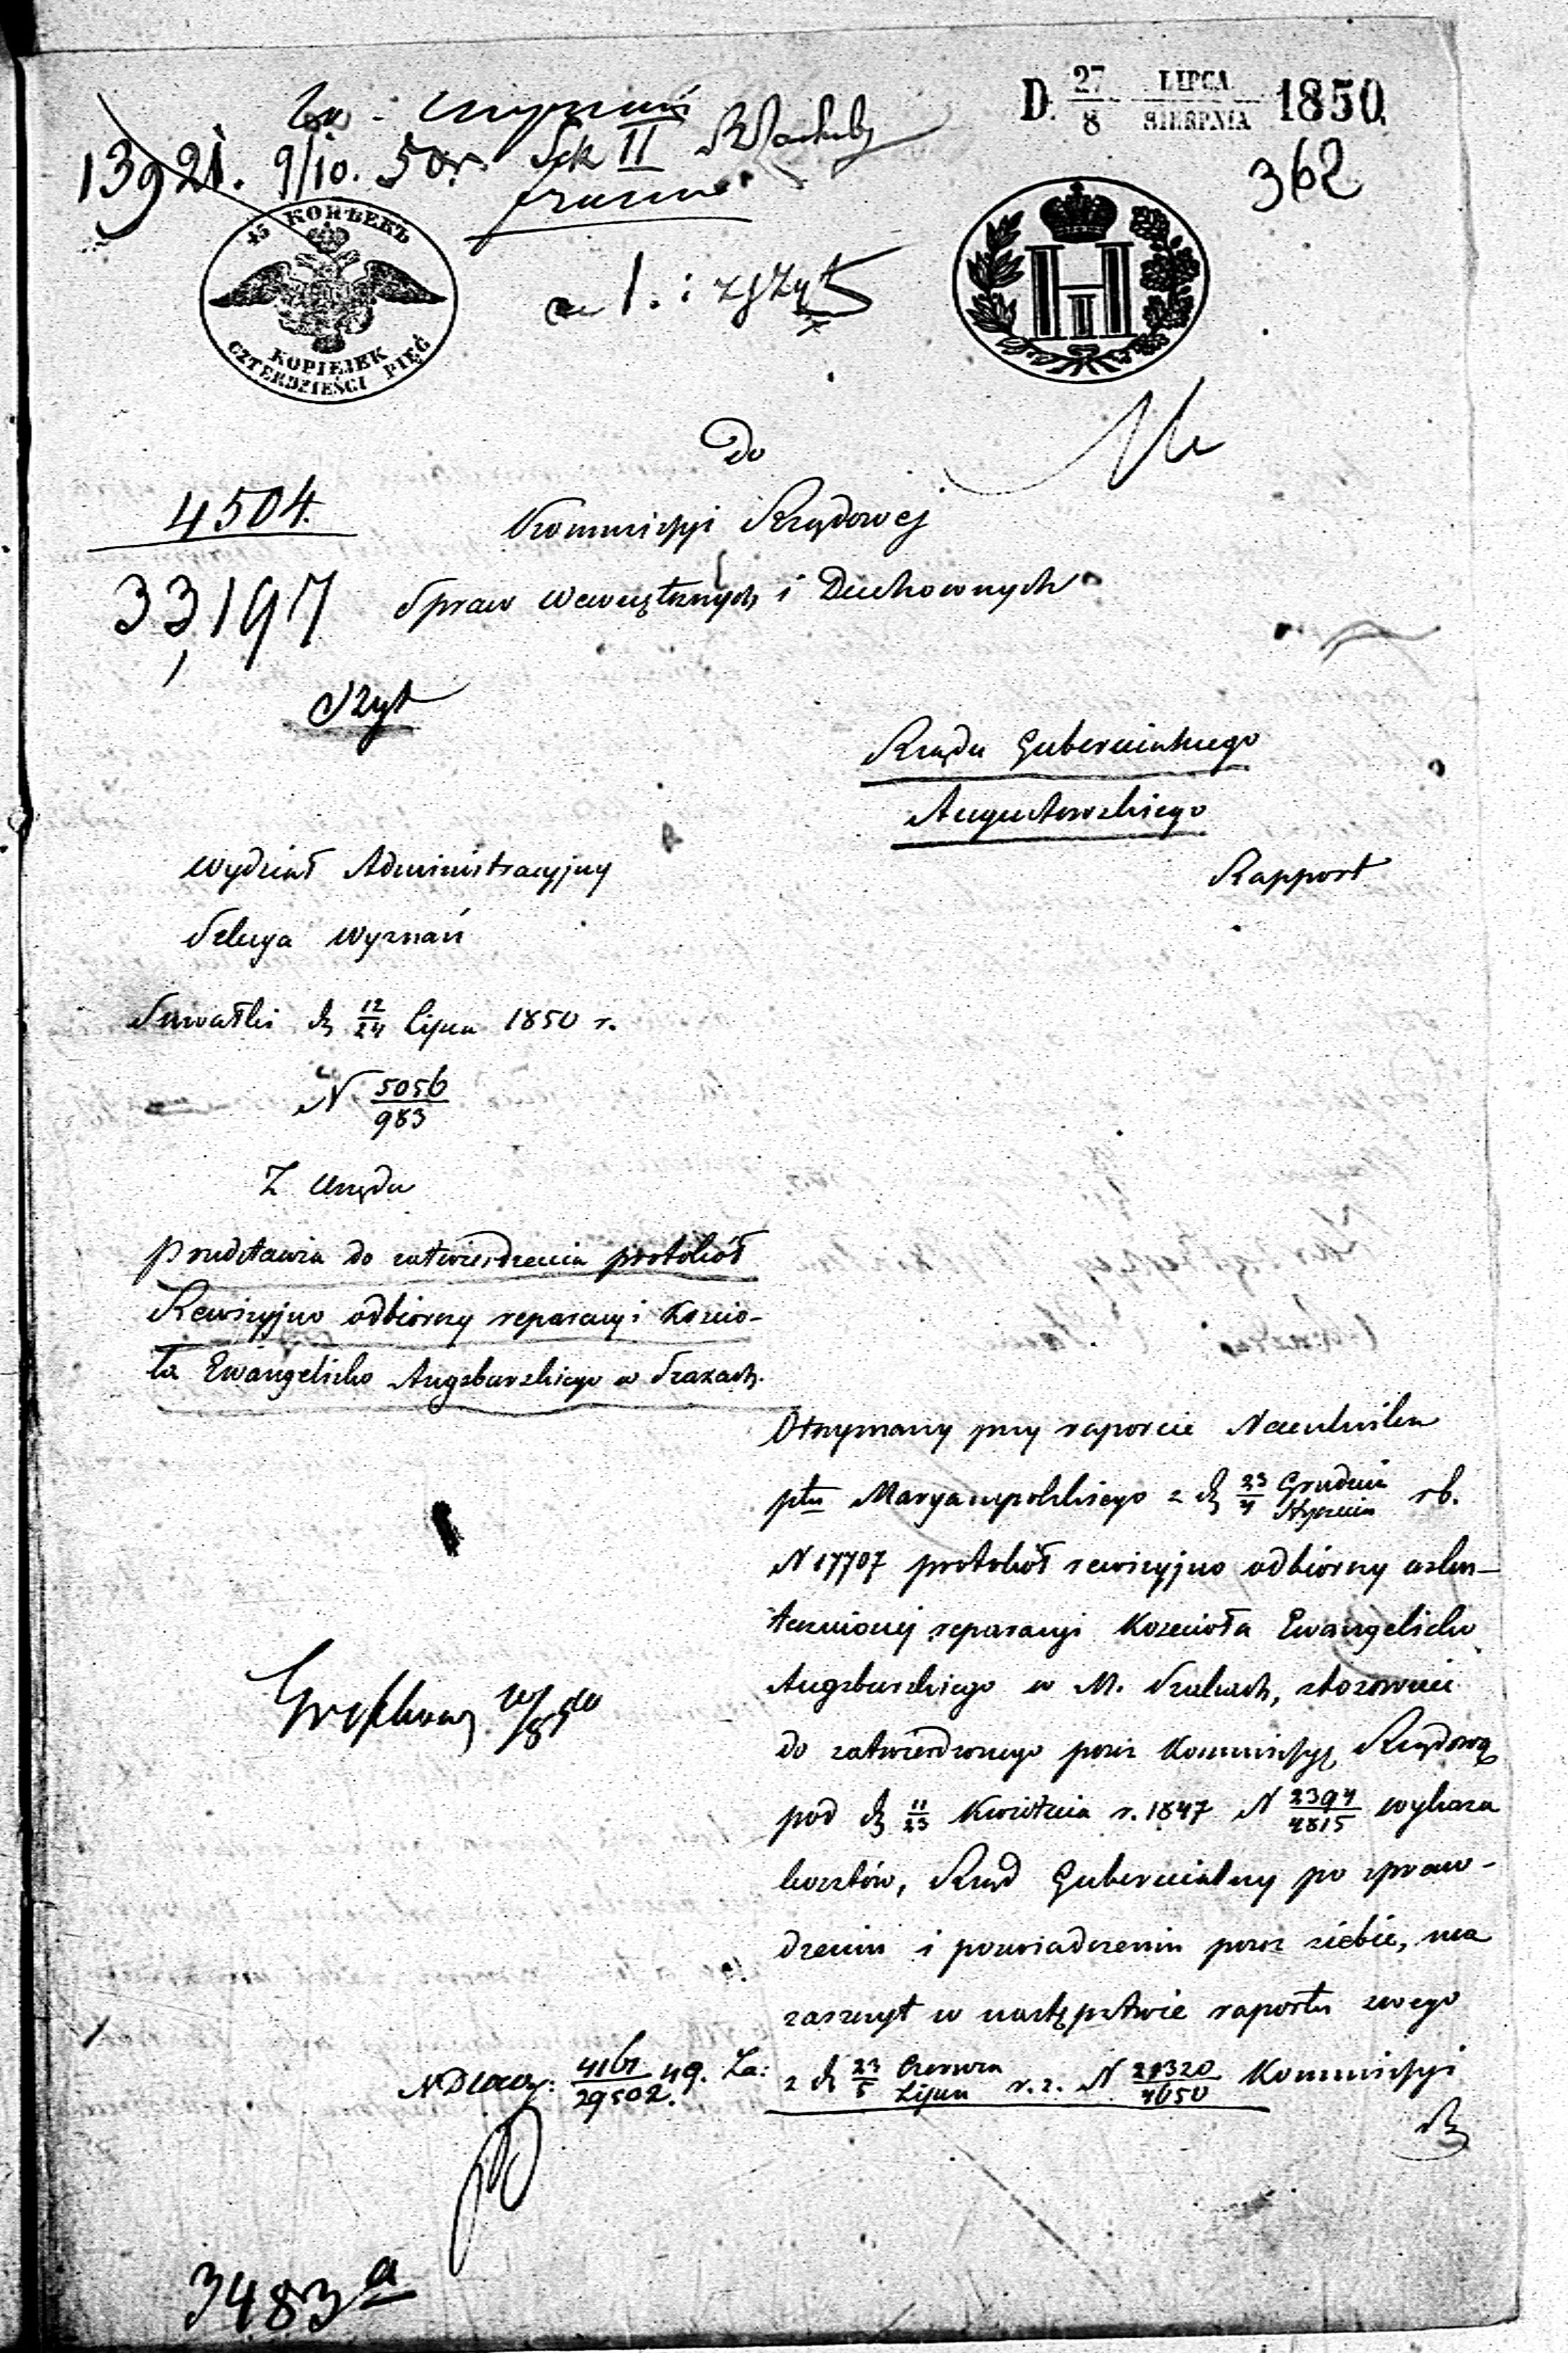 D. 27/8 LIPCA/SIERPNIA 1850.
362
13921. 9/10. 50r. Sek II
45 КОПѢЕКЪ
KOPIEJEK
CZTERDZIEŚCI PIĘĆ
H I
1. i zszyt
Do
4504.
Kommissyi Rządowej
33,197
Spraw Wewnętrznych i Duchownych
Szyt
Rządu Gubernialnego
Augustowskiego
Rapport
Wydział Administracyjny
Sekcya Wyznań
Suwałki d. 12/24 Lipca 1850 r.
N 5056/983
Z Urzędu
Przedstawia do zatwierdzenia protokół
Rewizyjno odbiorczy reparacyi Koscio-
ła Ewangelicko Augsburskiego w Szakach.
Otrzymany przy raporcie Naczelnika
ptu Maryampolskiego z d. 23/4 Grudnia/Stycznia rb.
N 17707 protokół rewizyjno odbiorczy usku-
tecznionej reparacyi Kościoła Ewangelicko
Augsburskiego w M. Szakach, stosownie
do zatwierdzonego przez Kommissyę Rządową
pod d. 11/23 Kwietnia r. 1847 N 2394/4815 wykazu
kosztów, Rząd Gubernialny po spraw-
dzeniu i poświadczeniu przez siebie, ma
zaszczyt w następstwie raportu swego
z d. 23/5 Czerwca/Lipca r. z. N 21320/4650 Kommissyi
29502. 49. Za:
3483a